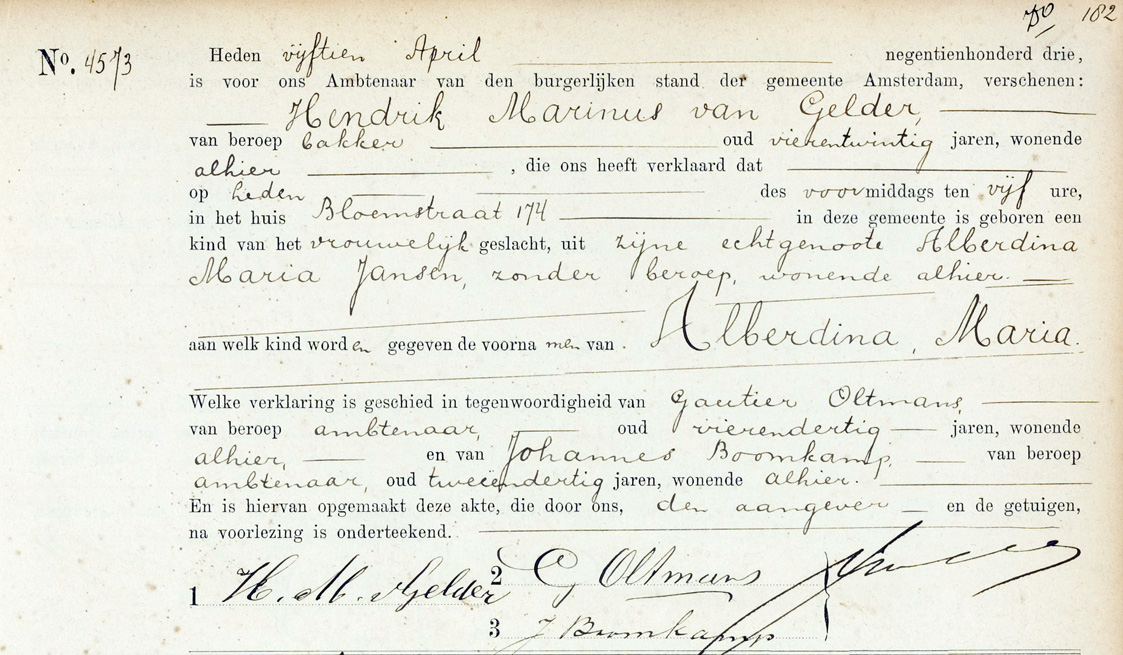 182
No. 4573
Heden vijftien April negentienhonderd drie,
is voor ons Ambtenaar van den burgerlijken stand der gemeente Amsterdam, verschenen:
Hendrik Marinus van Gelder,
van beroep bakker oud vierentwintig jaren, wonende
alhier , die ons heeft verklaard dat
op heden des voormiddags ten vijf ure,
in het huis Bloemstraat 174 in deze gemeente is geboren een
kind van het vrouwelijk geslacht, uit zijne echtgenoote Alberdina
Maria Jansen, zonder beroep, wonende alhier.
aan welk kind worden gegeven de voornamen van . Alberdina, Maria.
Welke verklaring is geschied in tegenwoordigheid van Gautier Oltmans,
van beroep ambtenaar, oud vierendertig jaren, wonende
alhier, en van Johannes Boomkamp, van beroep
ambtenaar, oud tweeëndertig jaren, wonende alhier.
En is hiervan opgemaakt deze akte, die door ons, den aangever en de getuigen,
na voorlezing is onderteekend.
1 H. M. v Gelder 2 G Oltmans
3 J Boomkamp